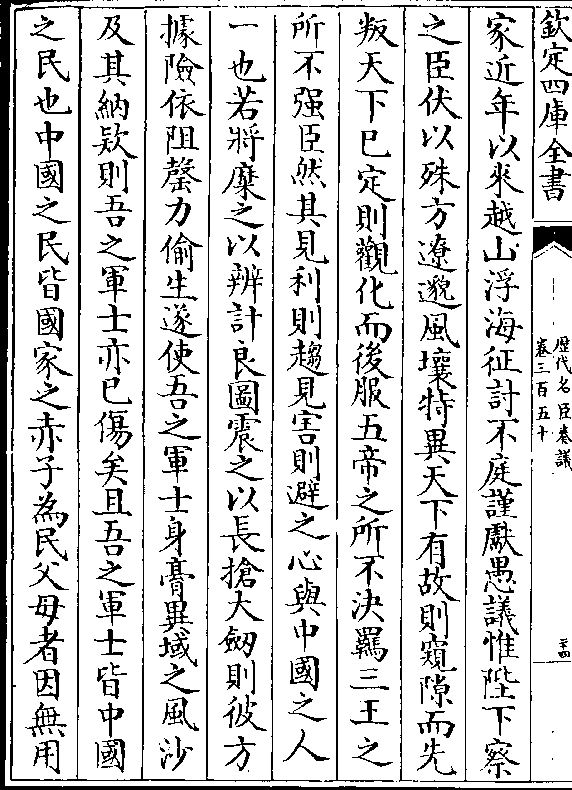 欽定四庫全書
歴代名臣奏議
卷三百五十
家近年以來越山浮海征討不庭謹獻愚議惟陛下察
之臣伏以殊方遼邈風壤特異天下有故則窺隙而先
叛天下已定則觀化而後服五帝之所不決羈三王之
所不强臣然其見利則趨見害則避之心與中國之人
一也若將糜之以辨計良圖震之以長搶大劔則彼方
據險依阻罄力偷生遂使吾之軍士身膏異域之風沙
及其納欵則吾之軍士亦已傷矣且吾之軍士皆中國
之民也中國之民皆國家之赤子為民父母者因無用